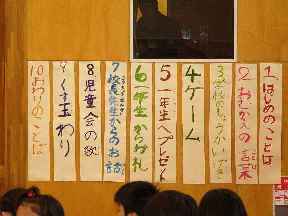 1 はじめのことば
2 おむかえの言葉
3 学校のしょうかい
4 ゲーム
5 一年生へプレゼント
6 一年生から お礼
7 校長先生からのお話
8 児童会の歌
9 くす玉わり
10 おわりのことば